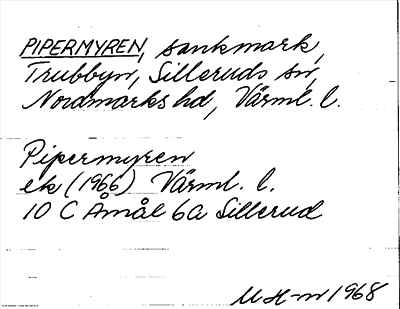 PIPERMYREN, sankmark,
Trubbyn, Silleruds sn,
Nordmarks hd, Värml. l.
Pipermyren
ek (1966) Värml. l.
10 C Åmål 6a Sillerud
MH-n 1968